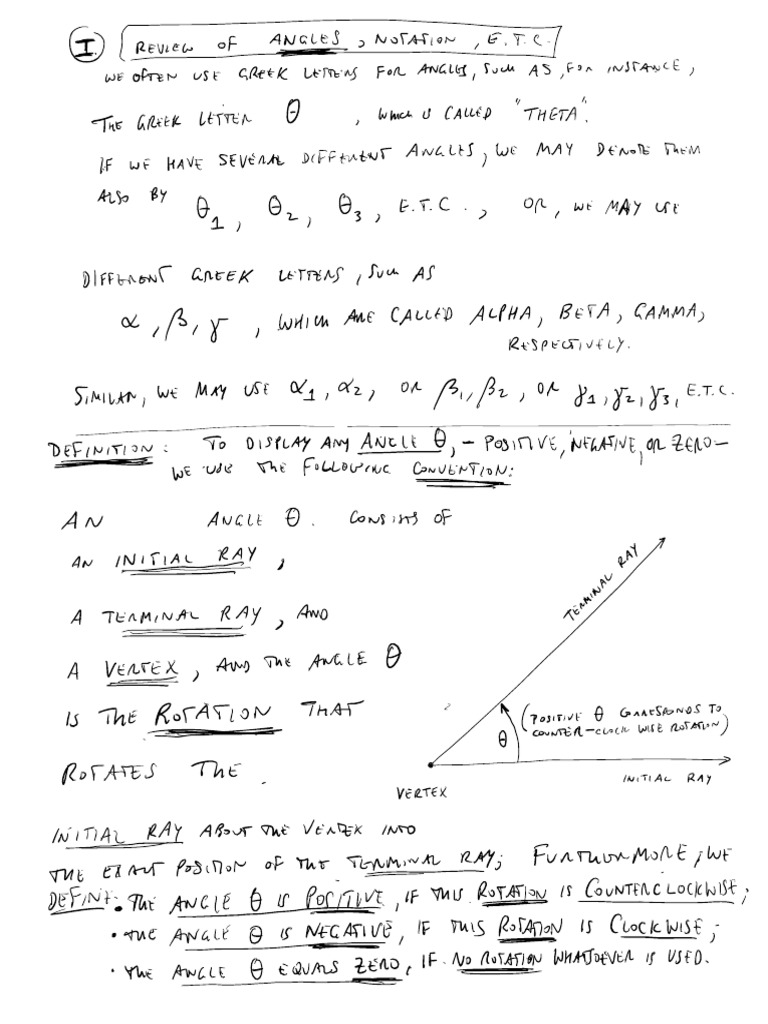 I. REVIEW OF ANGLES, NOTATION, E.T.C.
WE OFTEN USE GREEK LETTERS FOR ANGLES, SUCH AS, FOR INSTANCE,
THE GREEK LETTER θ, WHICH IS CALLED "THETA".
IF WE HAVE SEVERAL DIFFERENT ANGLES, WE MAY DENOTE THEM
ALSO BY θ₁, θ₂, θ₃, E.T.C., OR, WE MAY USE
DIFFERENT GREEK LETTERS, SUCH AS
α, β, γ, WHICH ARE CALLED ALPHA, BETA, GAMMA,
RESPECTIVELY.
SIMILAR, WE MAY USE α₁, α₂, OR β₁, β₂, OR γ₁, γ₂, γ₃, E.T.C.
DEFINITION: TO DISPLAY ANY ANGLE θ, – POSITIVE, NEGATIVE, OR ZERO –
WE USE THE FOLLOWING CONVENTION:
AN ANGLE θ. CONSISTS OF
AN INITIAL RAY,
A TERMINAL RAY, AND
A VERTEX, AND THE ANGLE θ
IS THE ROTATION THAT
ROTATES THE
TERMINAL RAY
(POSITIVE θ CORRESPONDS TO
COUNTER-CLOCK WISE ROTATION)
θ
INITIAL RAY
VERTEX
INITIAL RAY ABOUT THE VERTEX INTO
THE EXACT POSITION OF THE TERMINAL RAY; FURTHERMORE, WE
DEFINE: • THE ANGLE θ IS POSITIVE, IF THIS ROTATION IS COUNTERCLOCKWISE;
• THE ANGLE θ IS NEGATIVE, IF THIS ROTATION IS CLOCKWISE;
• THE ANGLE θ EQUALS ZERO, IF NO ROTATION WHATSOEVER IS USED.